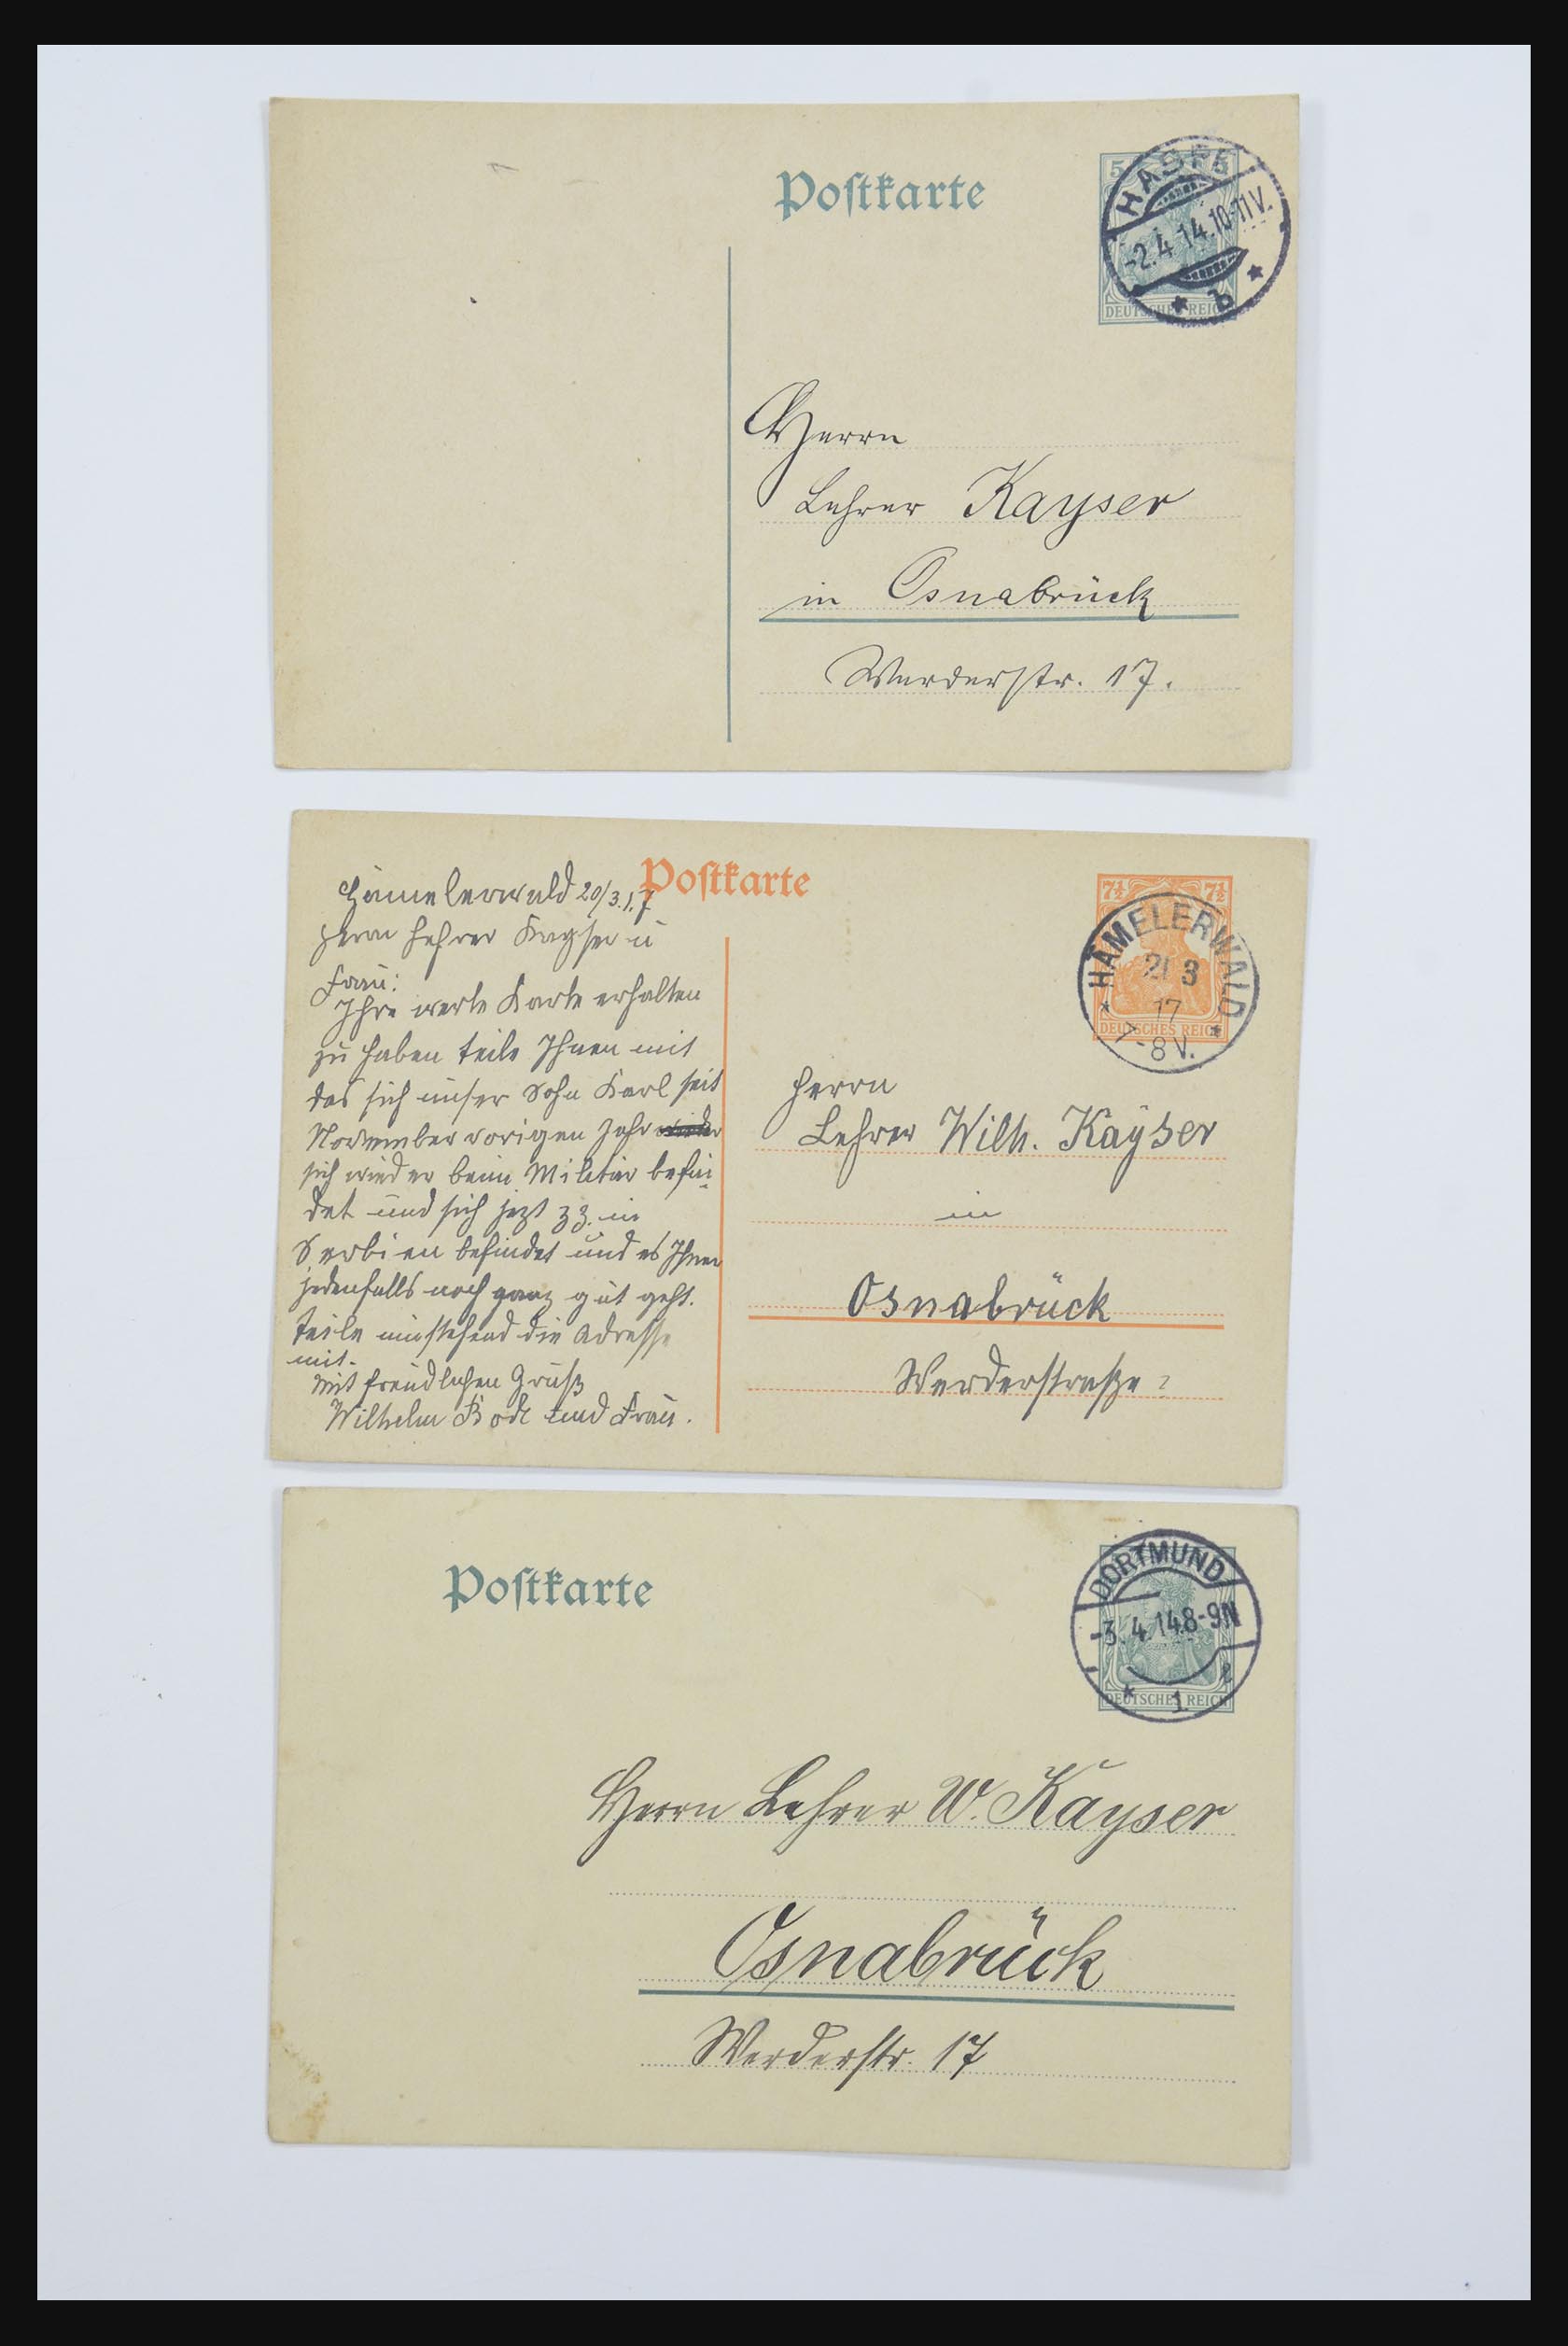 Postkarte
5 5
HASPE
-2.4.14.10-11V.
* b *
DEUTSCHES REICH
Herrn
Lehrer Kayser
in Osnabrück
Werderstr. 17.
Hämelerwald 20/3.17
Postkarte
Herrn Lehrer Kayser u
Frau:
Ihre werte Karte erhalten
zu haben teile Ihnen mit
das sich unser Sohn Karl seit
November vorigen Jahr
sich wieder beim Militär befin-
det und sich jezt zz. in
Serbien befindet und es Ihnen
jedenfalls noch ganz gut geht.
teile umstehend die Adresse
mit.
Mit freundlichen Gruß
Wilhelm Bode und Frau.
7½ 7½
HÄMELERWALD
21 3
17
* 7-8V. *
DEUTSCHES REICH
Herrn
Lehrer Wilh. Kayser
in
Osnabrück
Werderstraße
Postkarte
DORTMUND
-3.4.14.8-9N
* 1
DEUTSCHES REICH
Herrn Lehrer W. Kayser
Osnabrück
Werderstr. 17